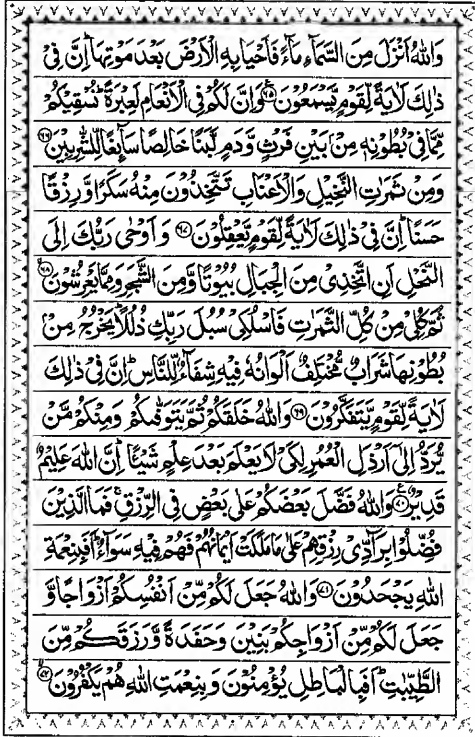 وَاللّٰهُ اَنْزَلَ مِنَ السَّمَآءِ مَآءً فَاَحْيَا بِهِ الْاَرْضَ بَعْدَ مَوْتِهَا ؕ اِنَّ فِيْ
ذٰلِكَ لَاٰيَةً لِّقَوْمٍ يَّسْمَعُوْنَ ﴿۶۵﴾ وَاِنَّ لَكُمْ فِي الْاَنْعَامِ لَعِبْرَةً ؕ نُسْقِيْكُمْ
مِّمَّا فِيْ بُطُوْنِهٖ مِنْۢ بَيْنِ فَرْثٍ وَّدَمٍ لَّبَنًا خَالِصًا سَآئِغًا لِّلشّٰرِبِيْنَ ﴿۶۶﴾
وَمِنْ ثَمَرٰتِ النَّخِيْلِ وَالْاَعْنَابِ تَتَّخِذُوْنَ مِنْهُ سَكَرًا وَّرِزْقًا
حَسَنًا ؕ اِنَّ فِيْ ذٰلِكَ لَاٰيَةً لِّقَوْمٍ يَّعْقِلُوْنَ ﴿۶۷﴾ وَاَوْحٰى رَبُّكَ اِلَى
النَّحْلِ اَنِ اتَّخِذِيْ مِنَ الْجِبَالِ بُيُوْتًا وَّمِنَ الشَّجَرِ وَمِمَّا يَعْرِشُوْنَ ﴿۶۸﴾
ثُمَّ كُلِيْ مِنْ كُلِّ الثَّمَرٰتِ فَاسْلُكِيْ سُبُلَ رَبِّكِ ذُلُلًا ؕ يَخْرُجُ مِنْۢ
بُطُوْنِهَا شَرَابٌ مُّخْتَلِفٌ اَلْوَانُهٗ فِيْهِ شِفَآءٌ لِّلنَّاسِ ؕ اِنَّ فِيْ ذٰلِكَ
لَاٰيَةً لِّقَوْمٍ يَّتَفَكَّرُوْنَ ﴿۶۹﴾ وَاللّٰهُ خَلَقَكُمْ ثُمَّ يَتَوَفّٰىكُمْ وَمِنْكُمْ مَّنْ
يُّرَدُّ اِلٰٓى اَرْذَلِ الْعُمُرِ لِكَيْ لَا يَعْلَمَ بَعْدَ عِلْمٍ شَيْـًٔا ؕ اِنَّ اللّٰهَ عَلِيْمٌ
قَدِيْرٌ ﴿۷۰﴾ وَاللّٰهُ فَضَّلَ بَعْضَكُمْ عَلٰى بَعْضٍ فِي الرِّزْقِ ۚ فَمَا الَّذِيْنَ
فُضِّلُوْا بِرَآدِّيْ رِزْقِهِمْ عَلٰى مَا مَلَكَتْ اَيْمَانُهُمْ فَهُمْ فِيْهِ سَوَآءٌ ؕ اَفَبِنِعْمَةِ
اللّٰهِ يَجْحَدُوْنَ ﴿۷۱﴾ وَاللّٰهُ جَعَلَ لَكُمْ مِّنْ اَنْفُسِكُمْ اَزْوَاجًا وَّ
جَعَلَ لَكُمْ مِّنْ اَزْوَاجِكُمْ بَنِيْنَ وَحَفَدَةً وَّرَزَقَكُمْ مِّنَ
الطَّيِّبٰتِ ؕ اَفَبِالْبَاطِلِ يُؤْمِنُوْنَ وَبِنِعْمَتِ اللّٰهِ هُمْ يَكْفُرُوْنَ ﴿۷۲﴾